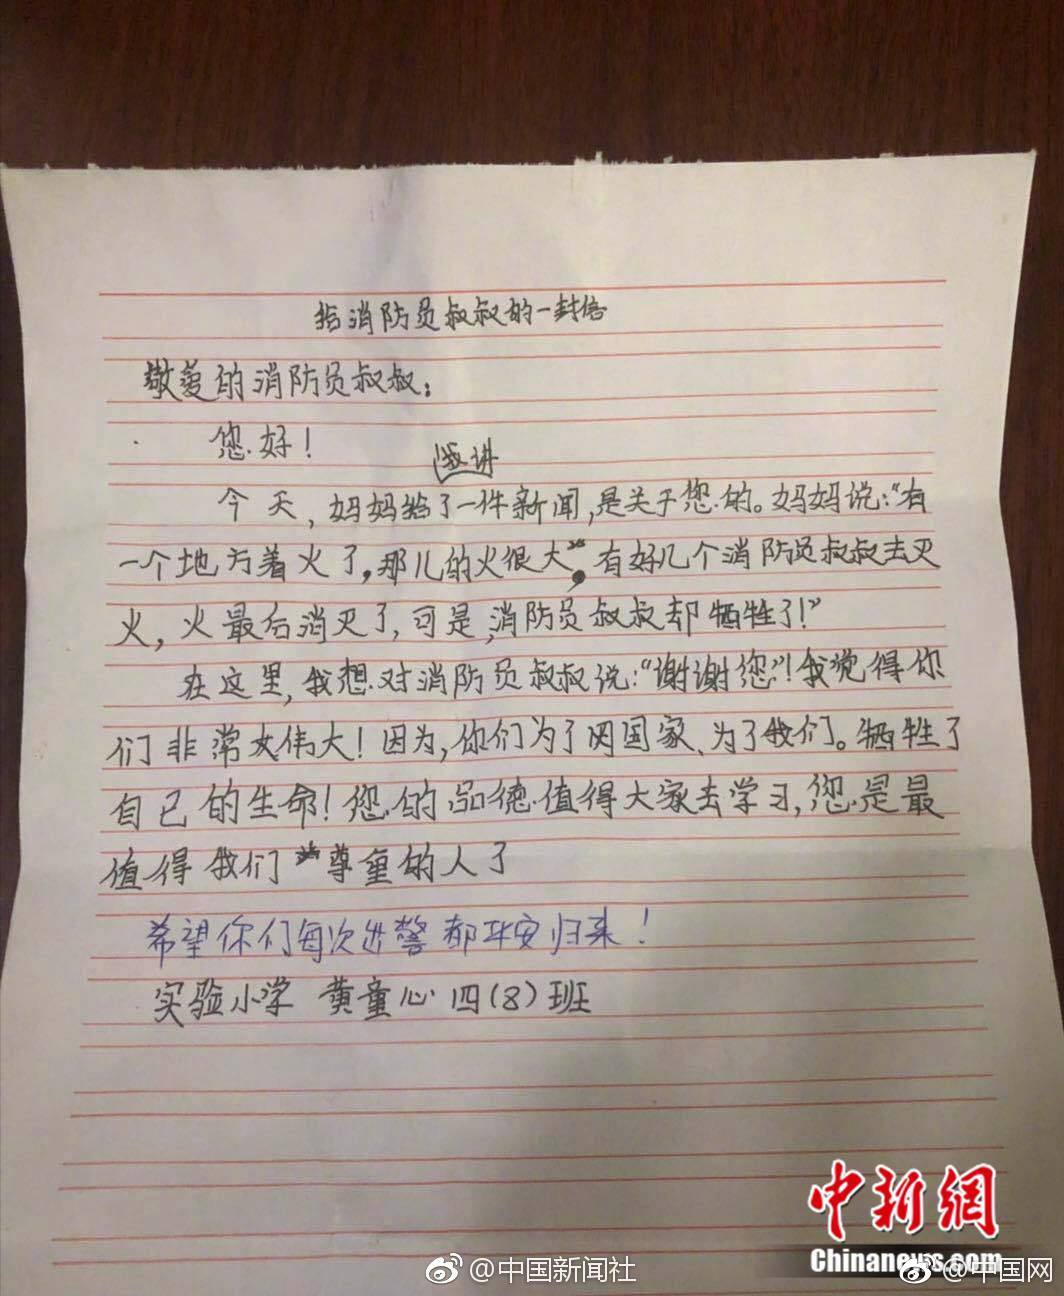 给消防员叔叔的一封信
敬爱的消防员叔叔:
您好!
我讲
今天,妈妈给了一件新闻,是关于您的。妈妈说:“有
一个地方着火了,那儿的火很大,有好几个消防员叔叔去灭
火,火最后消灭了,可是,消防员叔叔却牺牲了!”
在这里,我想对消防员叔叔说:“谢谢您”!我觉得你
们非常伟大!因为,你们为了国家、为了我们。牺牲了
自己的生命!您的品德值得大家去学习,您是最
值得我们尊重的人了
希望你们每次出警都平安归来!
实验小学 黄童心 四(8)班
中新網
Chinanews.com
@中国新闻社
@中国网